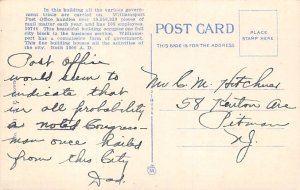 In this building all the various govern-
ment units are carried on. Williamsport
Post Office handles over
pieces of
mail matter each year and has 105 employees.
This gorgeous building occupies one full
city block in the business section. Williams-
port has a commission form of government.
This fine building houses all the activities of
the city. Built 1890 A. D.
Post Office
would seem to
indicate that
in all probability
a noted Congress-
man once hailed
from this City.
Dad.
POST CARD
THIS SPACE IS FOR THE ADDRESS
PLACE
STAMP HERE
Mr C. M. Hotchner
58 Karton Ave
Pitman
N.J.